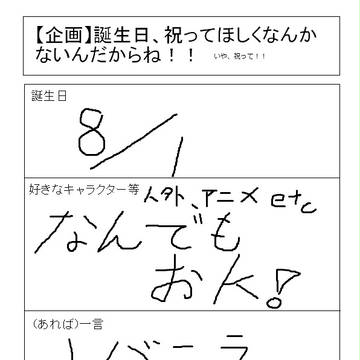 【企画】誕生日、祝ってほしくなんか
ないんだからね！！ いや、祝って！！
誕生日
8/1
好きなキャラクター等 人外、アニメ etc
なんでも
おK!
(あれば)一言